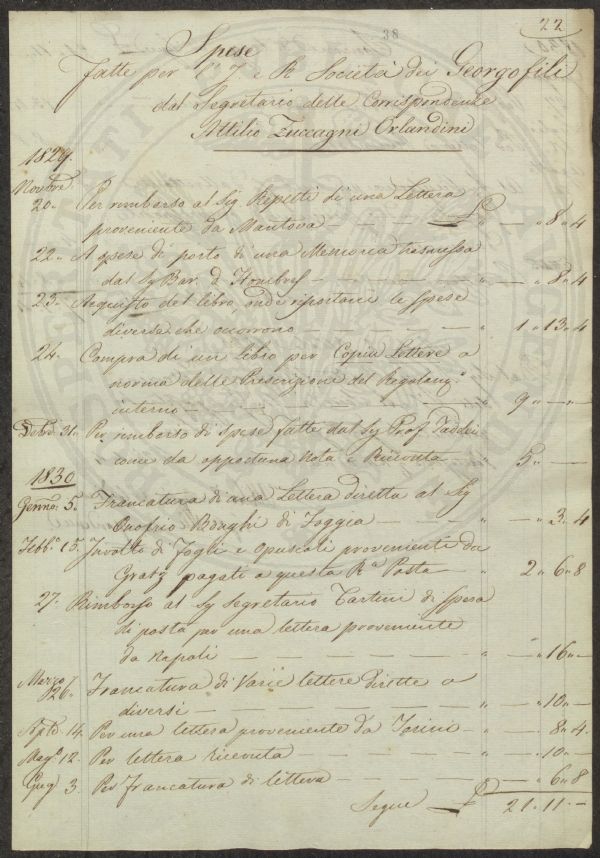 22
38
Spese
fatte per l'I e R Società dei Georgofili
dal Segretario delle Corrispondenze
Attilio Zuccagni Orlandini
1829.
Novbre
20. Per rimborso al Sig Repetti di una Lettera
proveniente da Mantova — £ — " 8 " 4
22. A spese di porto di una Memoria trasmessa
dal Sig Bar. d' Hombres — " — " 8 " 4
23. Acquisto del libro, onde riportarci le spese
diverse che occorrono — " 1 " 13 " 4
24. Compra di un libro per Copia Lettere a
norma delle Prescrizioni del Regolam.
interno — " 9 " — " —
Debre 31. Per rimborso di spese fatte dal Sig Prof. Taddei
come da opportuna Nota e Ricevuta — " 5 " — —
1830
Genno: 5. Francatura di una Lettera diretta al Sig
Onofrio Bonghi di Foggia — " — " 3 " 4
Febbo 15. Involto di Fogli e Opuscoli provenienti da
Gratz pagati a questa Ra Posta — " 2 " 6 " 8
27. Rimborso al Sig Segretario Tartini di spesa
di posta per una lettera proveniente
da Napoli — " — " 16 " —
Marzo
26. Francatura di Varie lettere dirette a
diversi — " — " 10 " —
Aple 14. Per una lettera proveniente da Torino — " — " 8 " 4
Mago 12. Per lettera ricevuta — " — " 10 " —
Giug 3. Per francatura di lettera — " — " 6 " 8
Segue — £ 21 . 11 . —